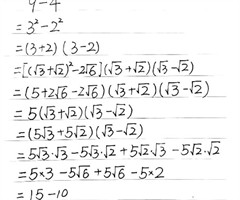 9-4
= 3² - 2²
= (3+2) (3-2)
= [(√3+√2)² - 2√6] (√3+√2) (√3-√2)
= (5+2√6 - 2√6) (√3+√2) (√3-√2)
= 5(√3+√2) (√3-√2)
= (5√3+5√2) (√3-√2)
= 5√3·√3 - 5√3·√2 + 5√2·√3 - 5√2·√2
= 5×3 - 5√6 + 5√6 - 5×2
= 15-10